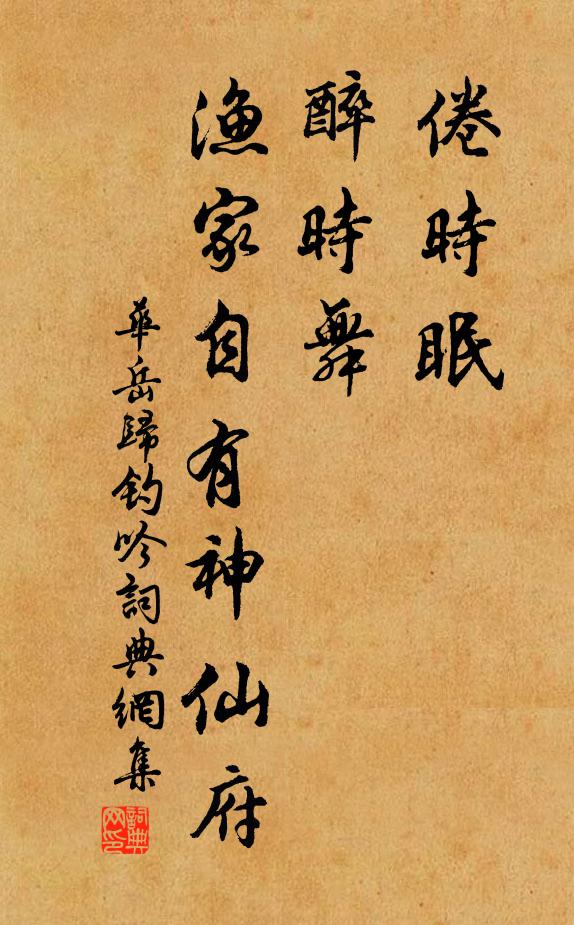 倦時眠
醉時舞
漁家自有神仙府
華岳歸釣吟詞典網集
詞典網印